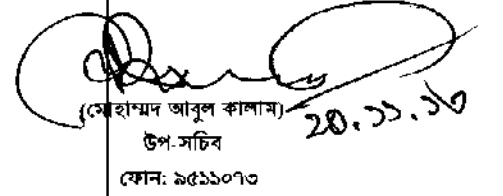 (মোহাম্মদ আবুল কালাম)
২০.১১.১৬
উপ-সচিব
ফোন: ৯৫১১০৭৩